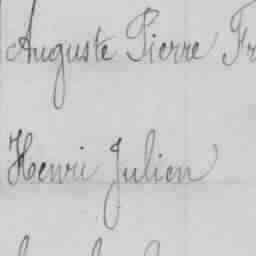 Auguste Pierre Fr
Henri Julien